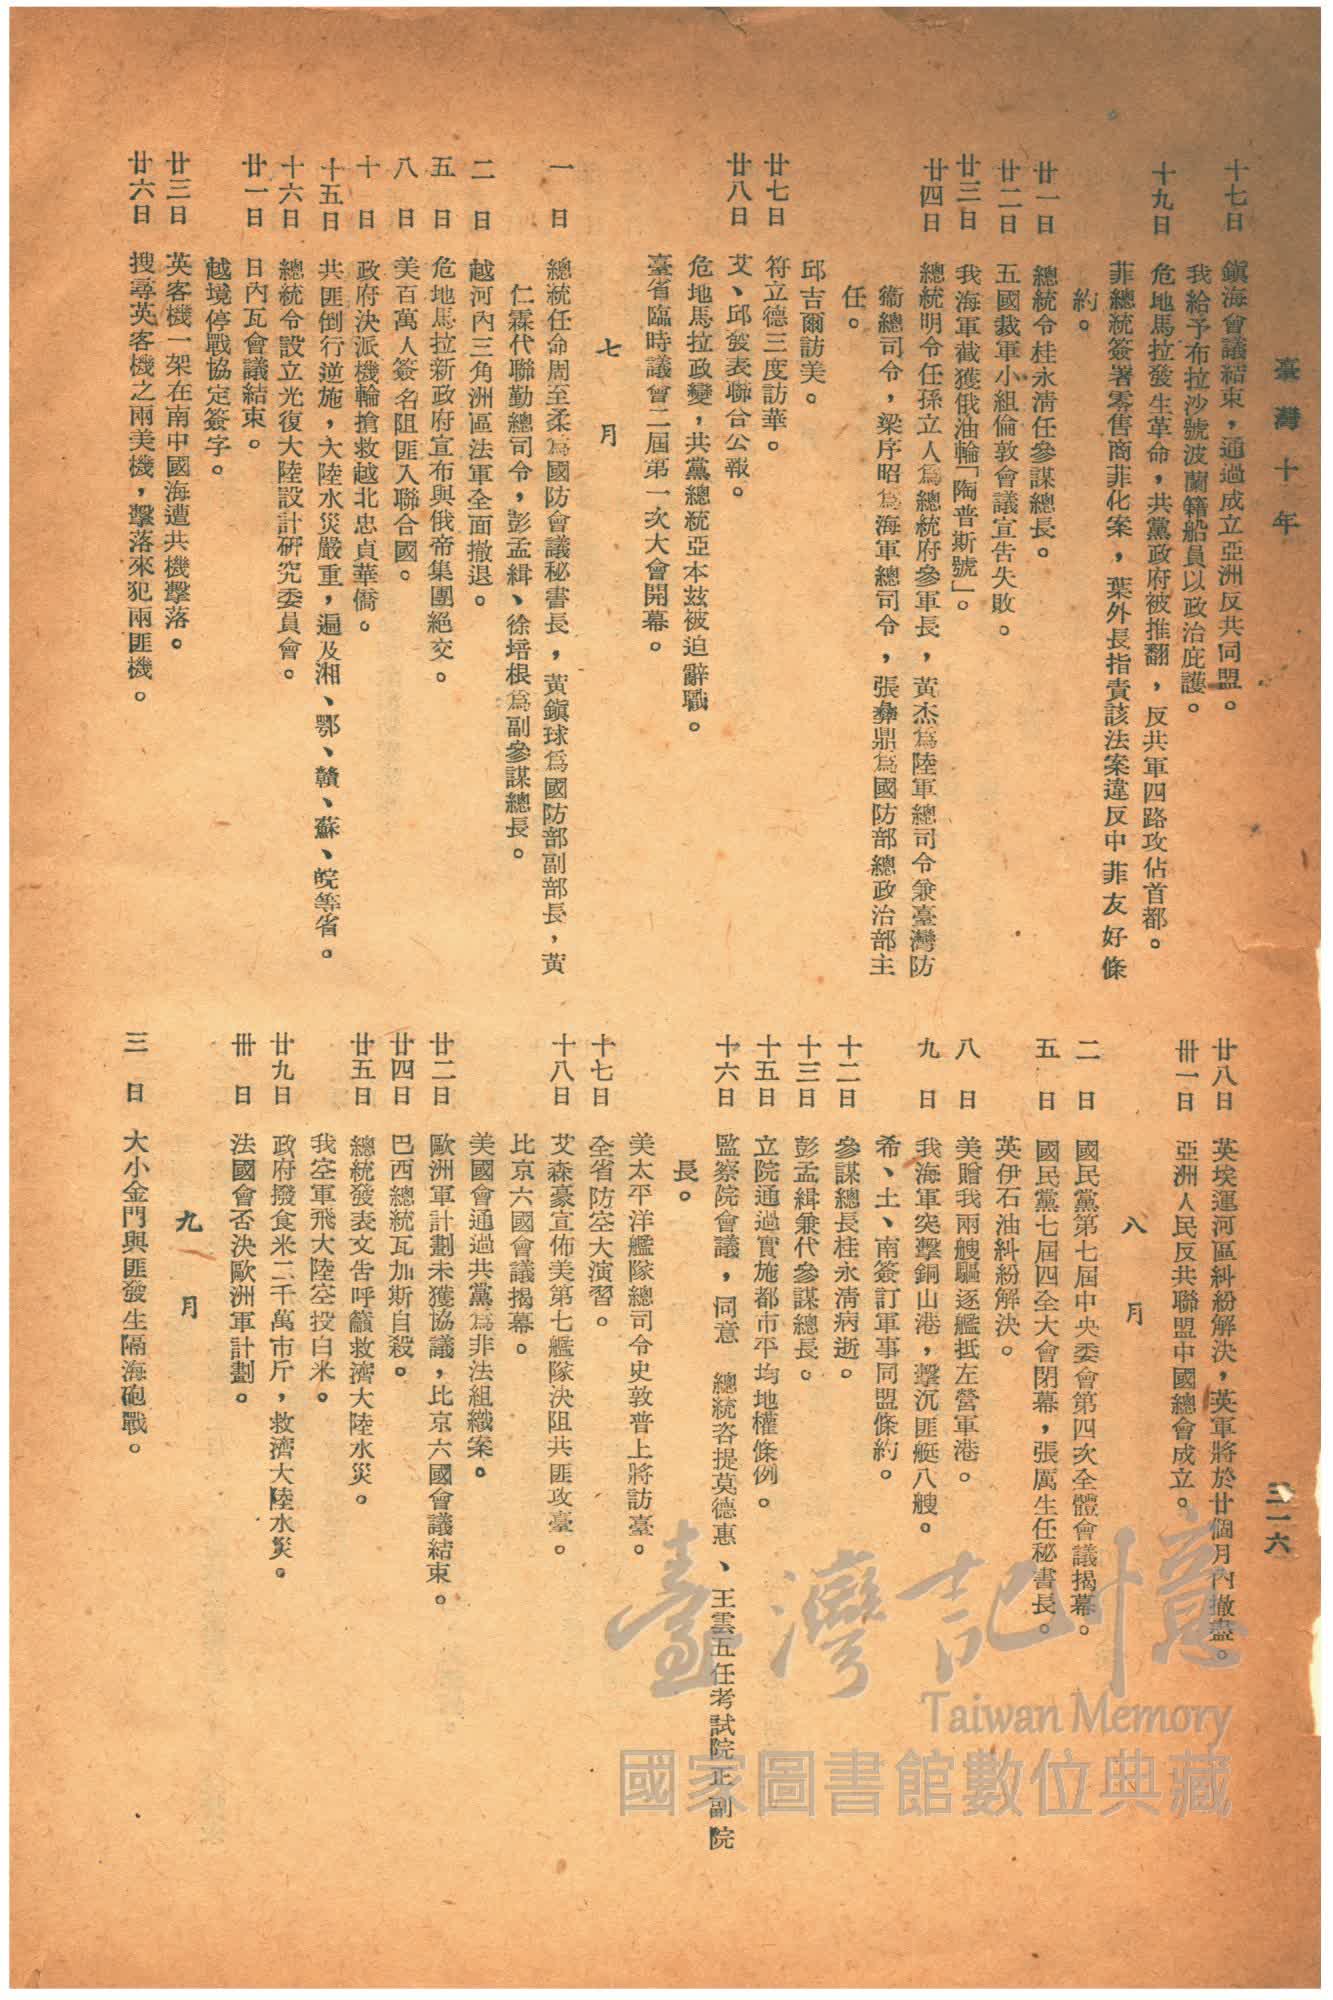 臺灣十年
十七日　鎭海會議結束，通過成立亞洲反共同盟。
我給予布拉沙號波蘭籍船員以政治庇護。
十九日　危地馬拉發生革命，共黨政府被推翻，反共軍四路攻佔首都。
菲總統簽署零售商菲化案，葉外長指責該法案違反中菲友好條
約。
廿一日　總統令桂永淸任參謀總長。
廿二日　五國裁軍小組倫敦會議宣告失敗。
廿三日　我海軍截獲俄油輪「陶普斯號」。
廿四日　總統明令任孫立人爲總統府參軍長，黃杰爲陸軍總司令兼臺灣防
衞總司令，梁序昭爲海軍總司令，張彝鼎爲國防部總政治部主
任。
邱吉爾訪美。
廿七日　符立德三度訪華。
廿八日　艾、邱發表聯合公報。
危地馬拉政變，共黨總統亞本玆被迫辭職。
臺省臨時議會二屆第一次大會開幕。
七月
一日　總統任命周至柔爲國防會議秘書長，黃鎭球爲國防部副部長，黃
仁霖代聯勤總司令，彭孟緝、徐培根爲副參謀總長。
二日　越河內三角洲區法軍全面撤退。
五日　危地馬拉新政府宣布與俄帝集團絕交。
八日　美百萬人簽名阻匪入聯合國。
十日　政府決派機輪搶救越北忠貞華僑。
十五日　共匪倒行逆施，大陸水災嚴重，遍及湘、鄂、贛、蘇、皖等省。
十六日　總統令設立光復大陸設計研究委員會。
廿一日　日內瓦會議結束。
越境停戰協定簽字。
廿三日　英客機一架在南中國海遭共機擊落。
廿六日　搜尋英客機之兩美機，擊落來犯兩匪機。
三一六
廿八日　英埃運河區糾紛解決，英軍將於廿個月內撤盡。
卅一日　亞洲人民反共聯盟中國總會成立。
八月
二日　國民黨第七屆中央委會第四次全體會議揭幕。
五日　國民黨七屆四全大會閉幕，張厲生任秘書長。
英伊石油糾紛解決。
八日　美贈我兩艘驅逐艦抵左營軍港。
九日　我海軍突擊銅山港，擊沉匪艇八艘。
希、土、南簽訂軍事同盟條約。
十二日　參謀總長桂永淸病逝。
十三日　彭孟緝兼代參謀總長。
十五日　立院通過實施都市平均地權條例。
十六日　監察院會議，同意　總統咨提莫德惠、王雲五任考試院正副院
長。
美太平洋艦隊總司令史敦普上將訪臺。
十七日　全省防空大演習。
十八日　艾森豪宣佈美第七艦隊決阻共匪攻臺。
比京六國會議揭幕。
美國會通過共黨爲非法組織案。
廿二日　歐洲軍計劃未獲協議，比京六國會議結束。
廿四日　巴西總統瓦加斯自殺。
廿五日　總統發表文告呼籲救濟大陸水災。
我空軍飛大陸空投白米。
廿九日　政府撥食米二千萬市斤，救濟大陸水災。
卅日　法國會否決歐洲軍計劃。
九月
三日　大小金門與匪發生隔海砲戰。
臺灣記憶
Taiwan Memory
國家圖書館數位典藏